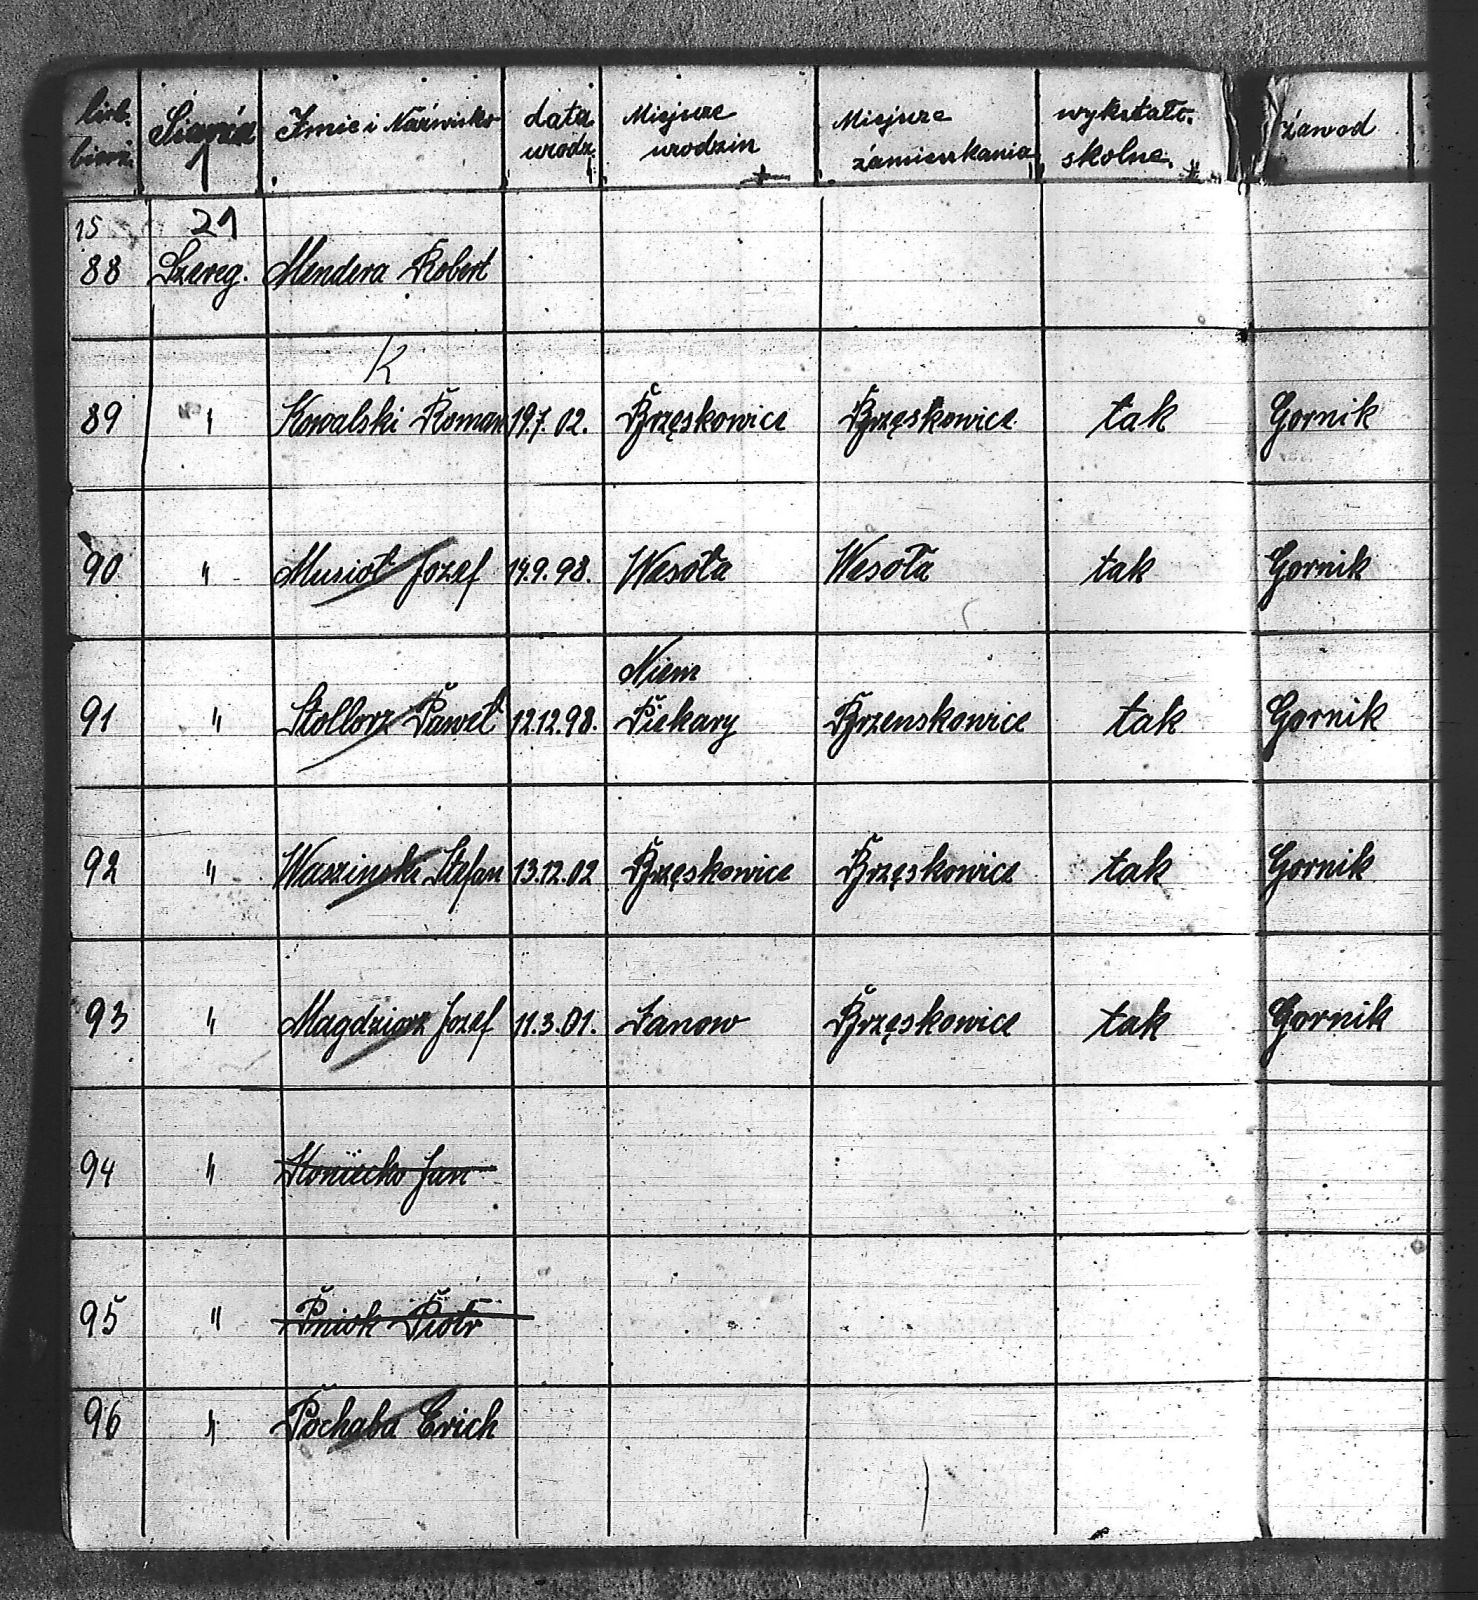 licb. bierz. Imie i Nazwisko data urodz. Miejsce urodzin Miejsce zamieszkania wykstałc. skolne. zawod
15 21
88 Szereg. Mendera Robert
K
89 " Kowalski Roman 19.7.02. Brzęskowice Brzęskowice tak Gornik
90 " Musioł Jozef 19.9.98. Wesoła Wesoła tak Gornik
Niem
91 " Stollorz Paweł 12.12.98. Piekary Brzenskowice tak Gornik
92 " Waszinski Stefan 13.12.02 Brzęskowice Brzęskowice tak Gornik
93 " Magdziorz Jozef 11.3.01. Janow Brzęskowice tak Gornik
94 " Koniecko Jan
95 " Pniok Piotr
96 " Pochaba Erich